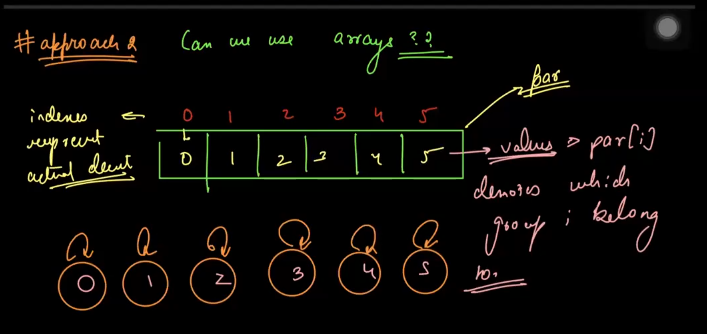 #approach 2 Can we use arrays ??
par
indexes ← 0 1 2 3 4 5
represent
actual
0 1 2 3 4 5 → values → par[i]
denotes which
group i belong
to.
0 1 2 3 4 5